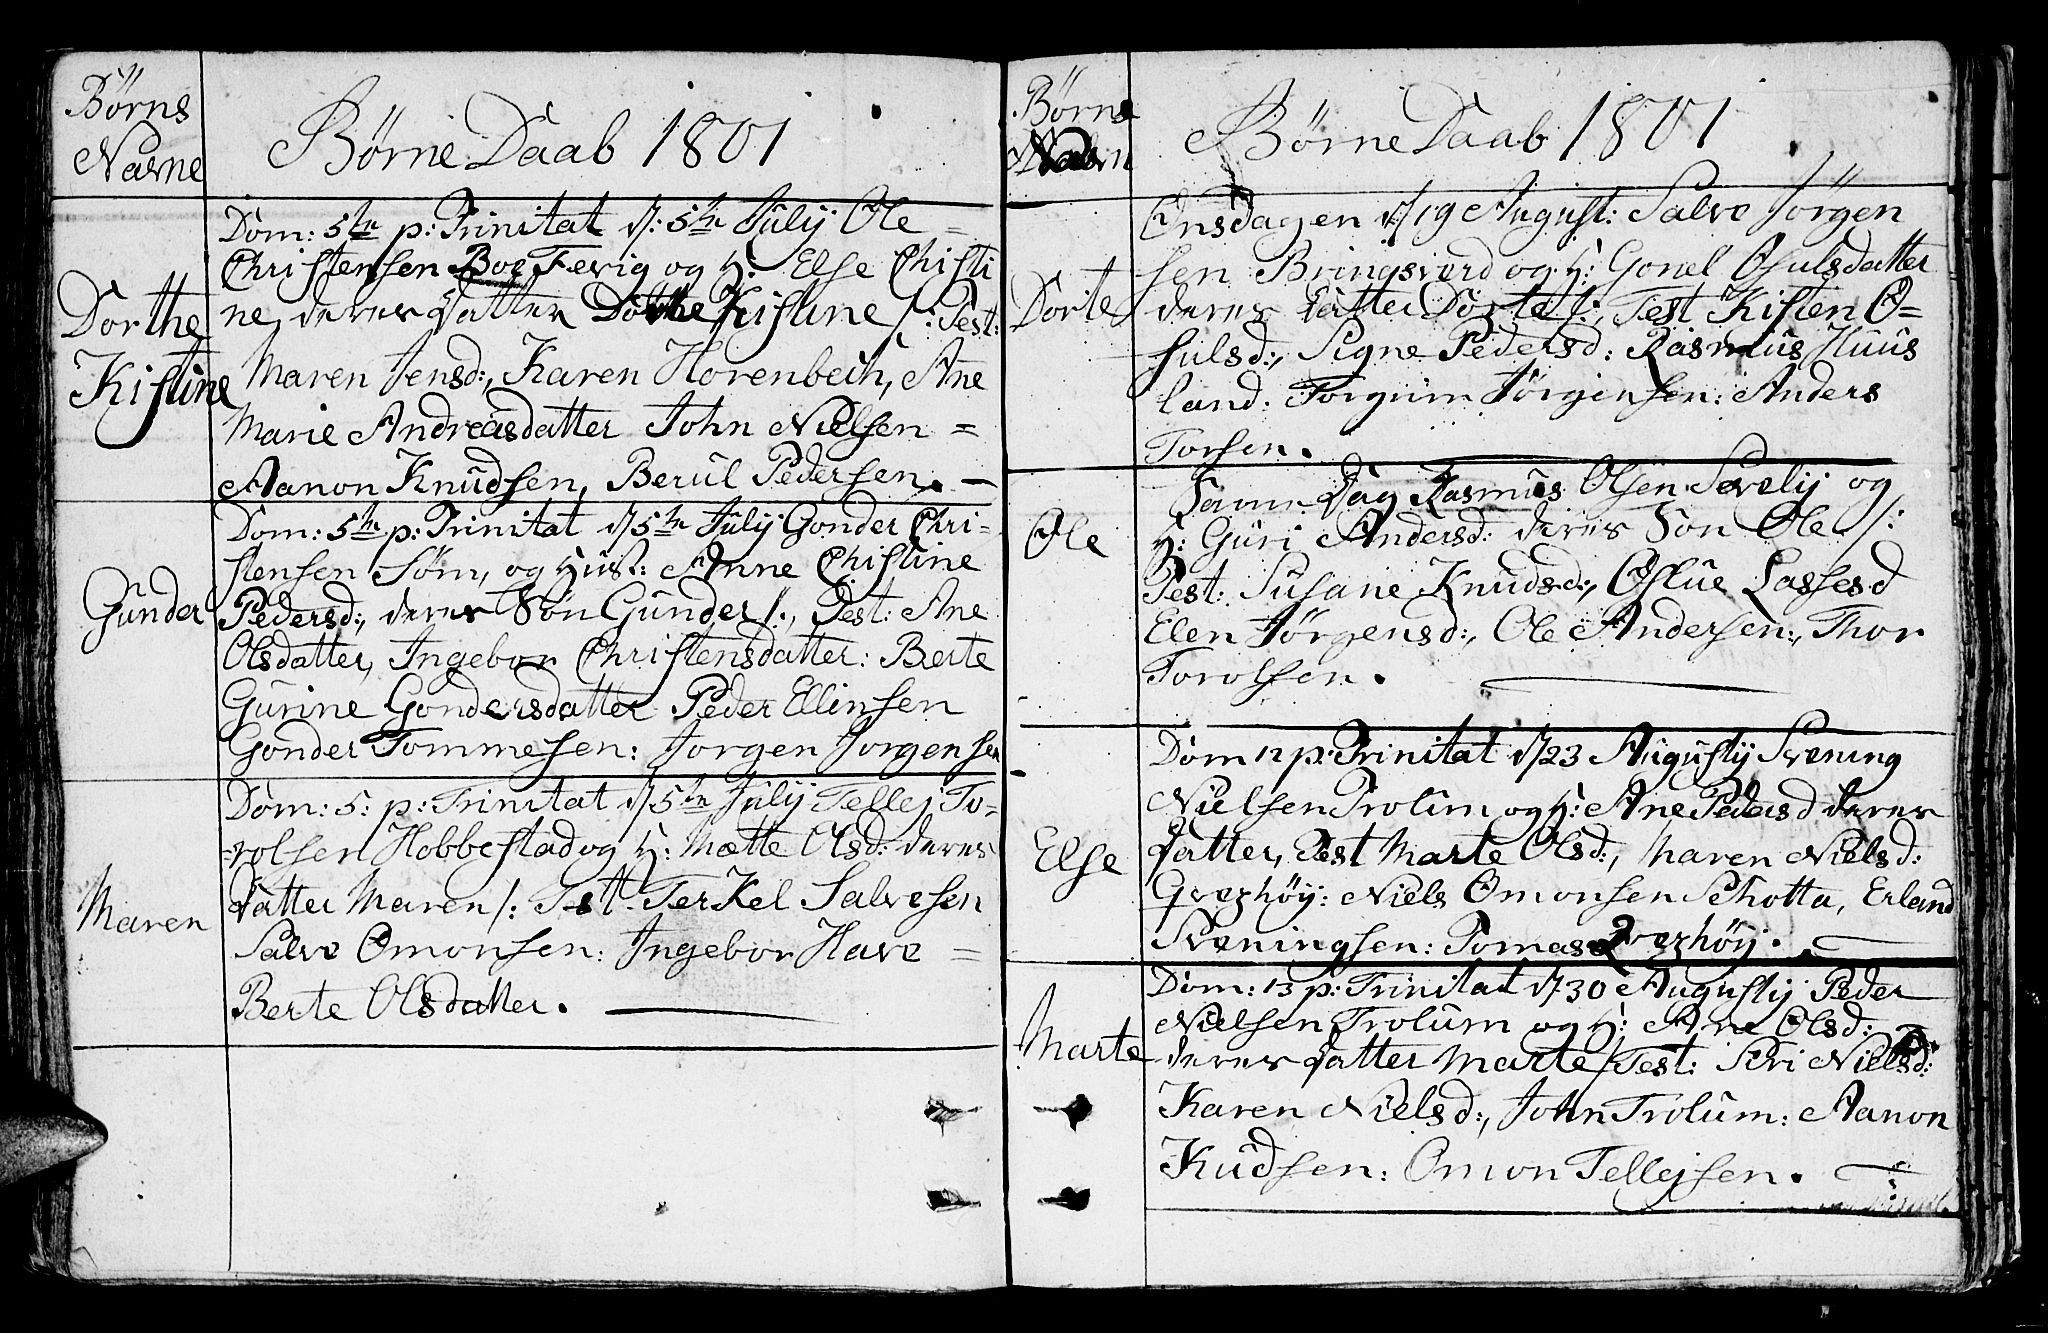 Börns
Navne
Börne Daab 1801
Dom: 5te p: Trinitat d: 5te Julij Ole
Christensen Boe Fevig og H: Else Christi
ne, deres Datter Dorthe Kistine /: Test:
Maren Jensd:, Karen Horenbech, Ane
Marie Andreasdatter John Nielsen =
Aanon Knudsen, Berul Pedersen. –
Dorthe
Kistine
Dom: 5te p: Trinitat d 5te Julij Gonder Chri-
stensen Söm, og Hust: Anne Christine
Pedersd:, deres Sön Gunder /:, Test: Ane
Olsdatter, Ingebor Christensdatter: Berte
Gurine Gondersdatter Peder Ellinsen
Gonder Tommesen: Jorgen Jorgensen
Gunder
Dom: 5: p: Trinitat d 5te Julij Tellej To-
rolsen Hobbestad og H: Mætte Olsd: deres
Datter Maren /: Test. Terkel Salvesen
Salve Omonsen: Ingebor Have =
Berte Olsdatter.
Maren
Börns
Navn
Börne Daab 1801
Onsdagen d 19 August: Salve Jörgen
sen Bringsverd og H: Gonel Osulsdatter
deres Datter Dorte /:, Test Kisten O=
sulsd:, Signe Pedersd: Rasmus Huus
land: Torgum Jörgensen: Anders
Torsen.
Dorte
Samme Dag Rasmus Olsen Sevelij og
H: Guri Andersd: deres Son Ole /:
Test: Susane Knudsd:, Oslue Lassesd
Elen Jörgensd:, Ole Andersen:, Thor
Torolsen.
Ole
Dom 12 p: Trinitat d 23 Augustij Svening
Nielsen Trolum og H: Ane Pedersd deres
Datter, Test Marte Olsd:, Maren Nielsd:
Grezhöy: Niels Omonsen Schotta, Erland
Sveningsen: Tomas Grezhöy.
Else
Dom: 13 p: Trinitat d 30 Augustij Peder
Nielsen Trolum og H: Ane Olsd:
deres Datter Marte /: Test: Siri Nielsd:
Karen Nielsd:, John Trolum: Aanon
Kudsen: Omon Tellejsen.
Marte